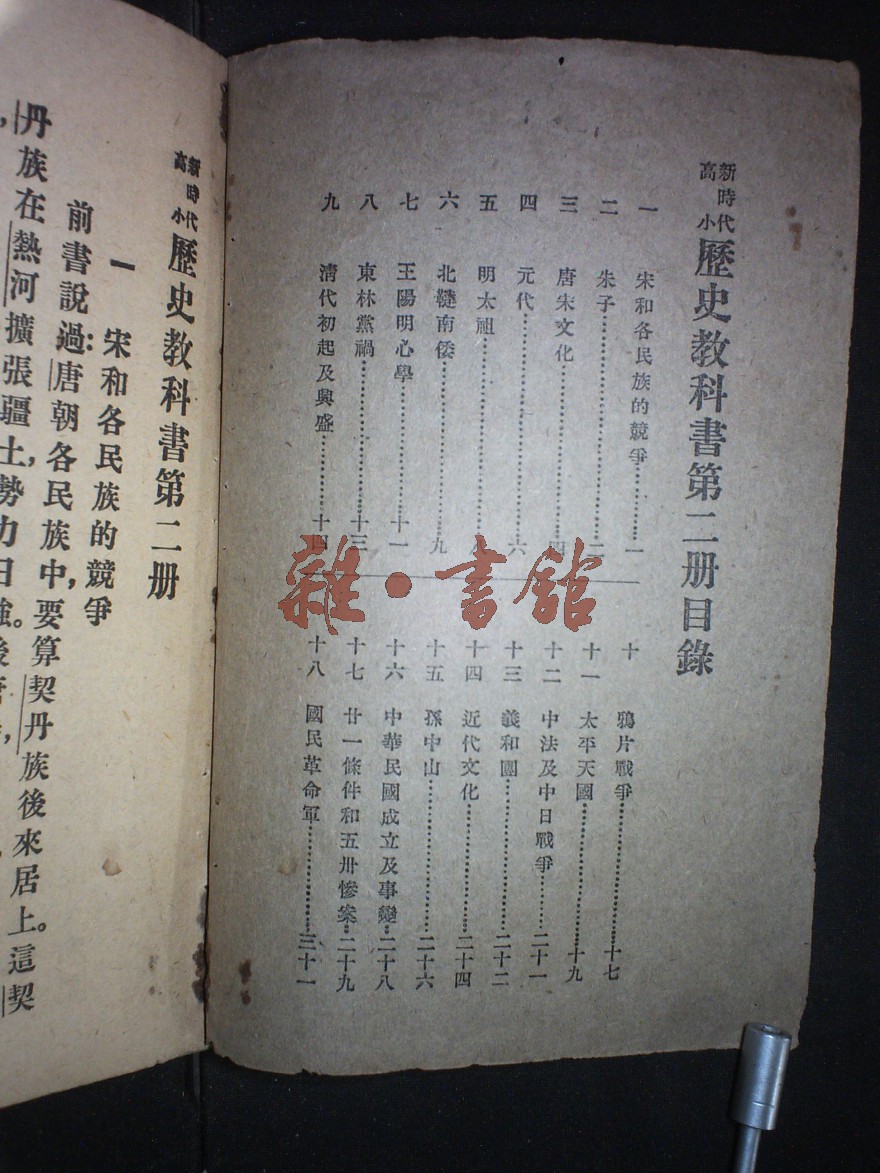 新時代高小 歷史教科書第二册目錄
一 宋和各民族的競爭…………一
二 朱子…………三
三 唐宋文化…………四
四 元代…………六
五 明太祖…………八
六 北韃南倭…………九
七 王陽明心學…………十一
八 東林黨禍…………十三
九 淸代初起及興盛…………十四
十 鴉片戰爭…………十七
十一 太平天國…………十九
十二 中法及中日戰爭…………二十一
十三 義和團…………二十二
十四 近代文化…………二十四
十五 孫中山…………二十六
十六 中華民國成立及事變…二十八
十七 廿一條件和五卅慘案…二十九
十八 國民革命軍…………三十一
雜·書館
新時代高小 歷史教科書第二册
一 宋和各民族的競爭
前書說過：唐朝各民族中，要算契丹族後來居上。這契
丹族在熱河擴張疆土，勢力日強。後唐